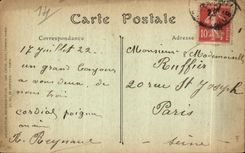 14
Carte Postale
Correspondance
Adresse
17 juillet 22
Monsieur & Mademoiselle
Ruffier
un grand bonjour
à vous deux de
20 rue St Joseph
nous trois
Paris
cordial poignée
main
Seine
R. Reynaud
10